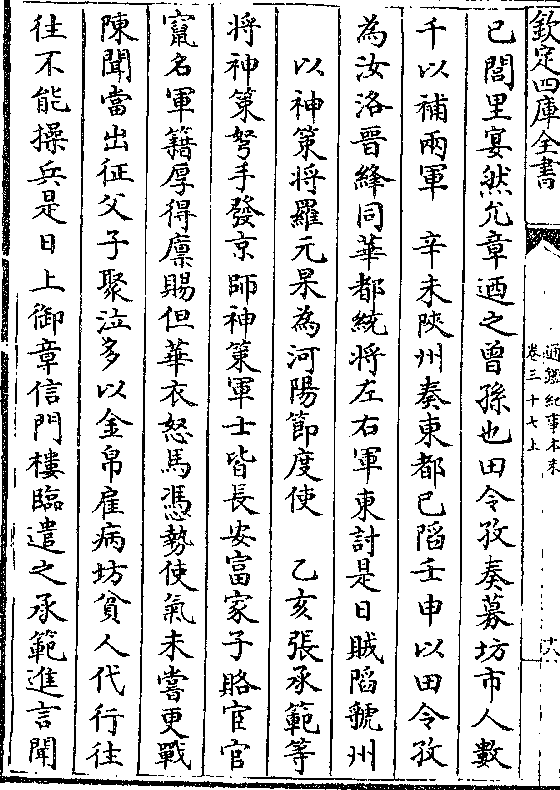 欽定四庫全書
通鑑紀事本末
卷三十七上
已閭里宴然允章迺之曾孫也田令孜奏募坊市人數
千以補兩軍　辛未陜州奏東都已陷壬申以田令孜
為汝洛晉絳同華都統將左右軍東討是日賊陷虢州
以神策將羅元杲為河陽節度使　乙亥張承範等
将神策弩手發京師神策軍士皆長安富家子賂宦官
竄名軍籍厚得廩賜但華衣怒馬憑勢使氣未嘗更戰
陳聞當出征父子聚泣多以金帛雇病坊貧人代行往
往不能操兵是日上御章信門樓臨遣之承範進言聞